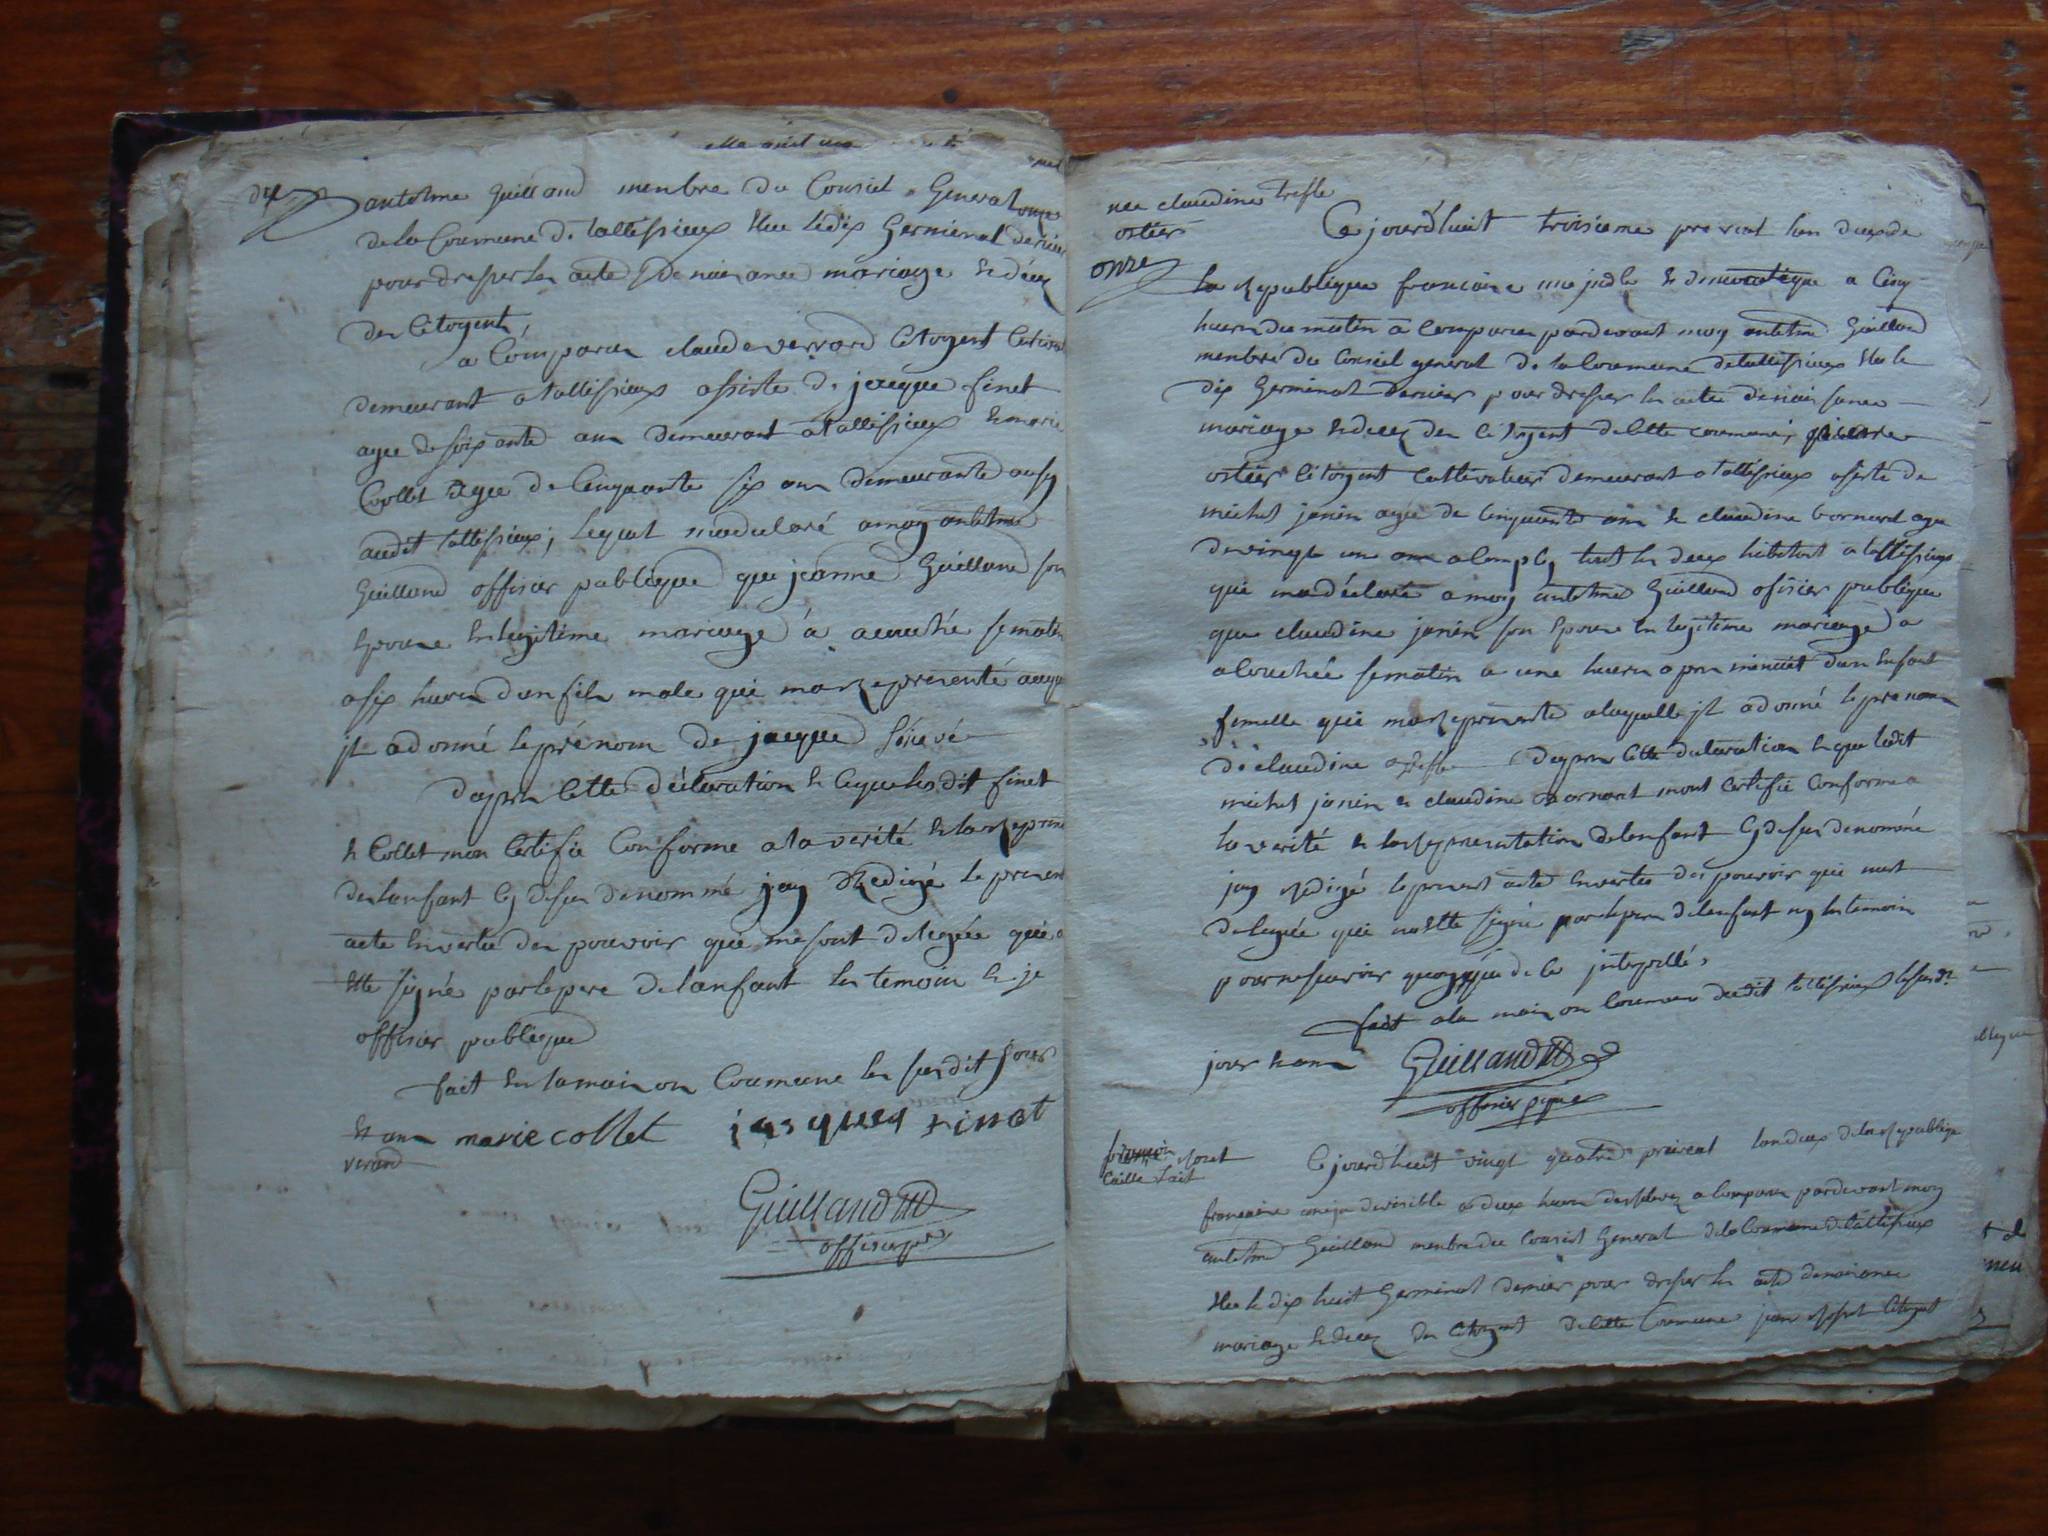 dix
antelme Guilland menbre du Conseil General
de la Coumune de tallissieux Elue le dix Germinal dernier
pour dresser les acte de naissance mariage & décex
des Citoyent,
a Comparu claude verrard Citoyent
demeurant a tallissieux assiste de jacque finet
agee de soixante ans demeurant a tallissieux & marie
Collet agee de Cinquante six ans demeurante ausy
audit tallissieux; Lequel ma declaré a moy antelme
Guilland officier publique que jeanne Guilland son
Epouse En legitime mariage a acouché se matin
a six heures dun fils male que ma Representé auquel
jl a donné le prénom de jacque
dapres Cette déclaration & Ceque lesdit finet
& Collet mon Certifié Conforme a la verité & la Represen
de lanfant Cy desus denommé jay Redigé le present
acte En vertu des pouvoir que me sont delegée qui a
Ette signé par le pere de lanfant les temoin & je
officier publique
fait En la maison Coumune les susdit jour
& ans marie collet jacques finet
verard
Guilland
officier
nee claudine trefle
ostier
onze
Ce jourdhuit troisieme prerial lan deux de
la Republique francaise une jndle & dimocratique a Cinq
heures du matin a Comparu pardevant moy antelme Guilland
menbre du Conseil general de la Coumune de tallissieux Elue le
dix Germinal dernier pour dresser les acte de naissance
mariage & decex des Citoyent de Cette Coumune,
ostier Citoyent Cultivateur demeurant a tallissieux assiste de
michel janin agée de Cinquante ans & claudine bornard agee
de vingt un ans acomply tout les deux habitant a tallissieux
qui ma déclaré a moy antelme Guilland officier publique
que claudine janin son Epouse En legitime mariage a
acouchée se matin a une heures apres minuit dun Enfant
femelle que ma Representé a laquelle jl a donné le prenom
de claudine trefle dapres Cette declaration & que ledit
michel janin & claudine bornard mont Certifié Conforme a
la verité & la Representation de lenfant Cy desus denommé
jay Redigé le present acte En vertu des pouvoir que mest
delegée qui na Ette signé par le pere de lenfant ny les temoin
pour ne savoir quoyque de ce jnterpellé,
fait a la maison Coumune dudit tallissieux le susdt
jour & ans Guilland
officier pque
caille lait
Ce jourdhuit vingt quatre prerial lan deux de la Republique
francaise une jndivisible a deux heures a Comparu pardevant moy
antelme Guilland menbre du Conseil General de la Coumune de tallissieux
Elue le dix huit Germinal dernier pour dresser les acte de naissance
mariage & decex des Citoyent de Cette Coumune jean Citoyent